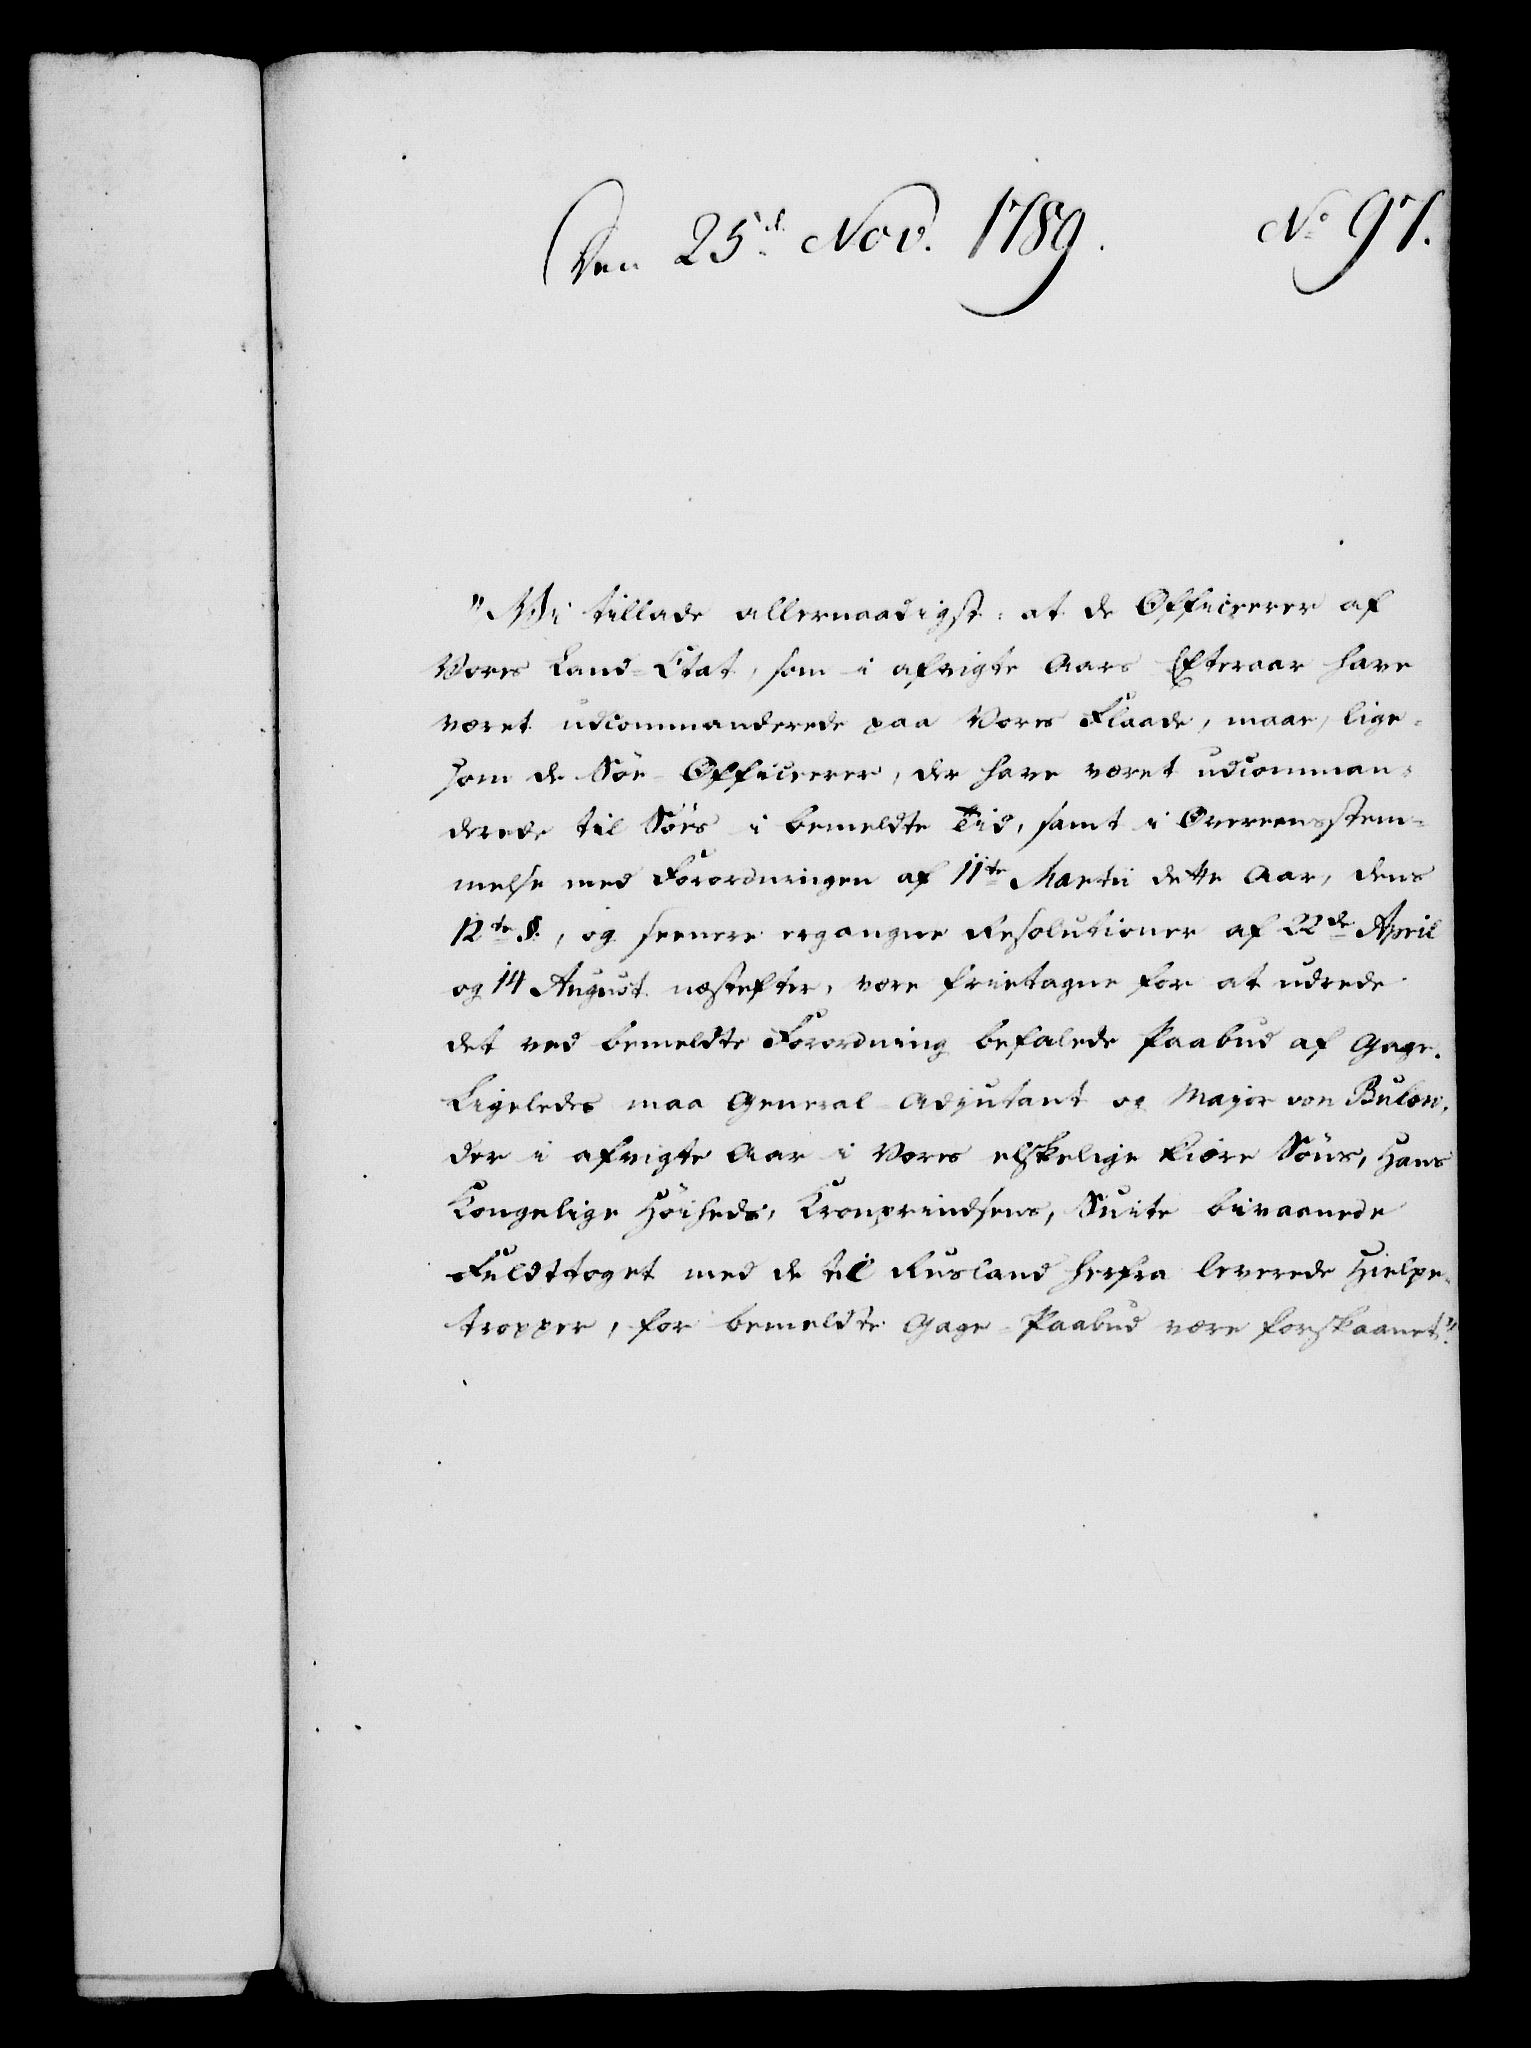 Den 25.d Nov. 1789. No 97.
"Wi tillade allernaadigst, at de Officerer af
Vores Land-Etat, som i afvigte Aars Efteraar have
været udcommanderede paa Vores Flaade, maae, lige-
som de Söe-Officerer, der have været udcomman-
derede til Söes i bemeldte Tid, samt i Overeensstem-
melse med Forordningen af 11te Martii dette Aar, dens
12te §., og seenere ergangne Resolutioner af 22de April
og 14 August næstefter, være frietagne for at udrede
det ved bemeldte Forordning befalede Paabud af Gage.
Ligeledes maa General-Adjutant og Major von Bülow,
der i afvigte Aar i Vores elskelige kiære Söns, Hans
Kongelige Höiheds, Kronprindsens, Suite bivaanede
Feldttoget med de til Rusland herfra leverede Hielpe-
tropper, for bemeldte Gage-Paabud være forskaanet".